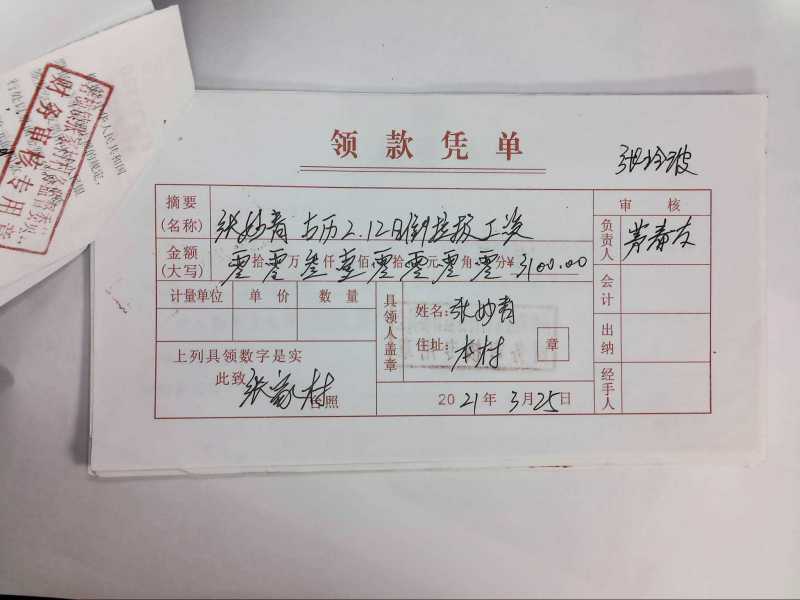 财务审核专用章
领款凭单
张玲波
摘要(名称) 张妙青 古历2.12日倒垃圾工资
金额(大写) 零拾零万叁仟壹佰零拾零元零角零分¥3100.00
计量单位 单价 数量
具领人盖章
姓名:张妙青
住址:本村
章
上列具领数字是实
此致 张家村
台照
2021年3月25日
审核
负责人
会计
出纳
经手人